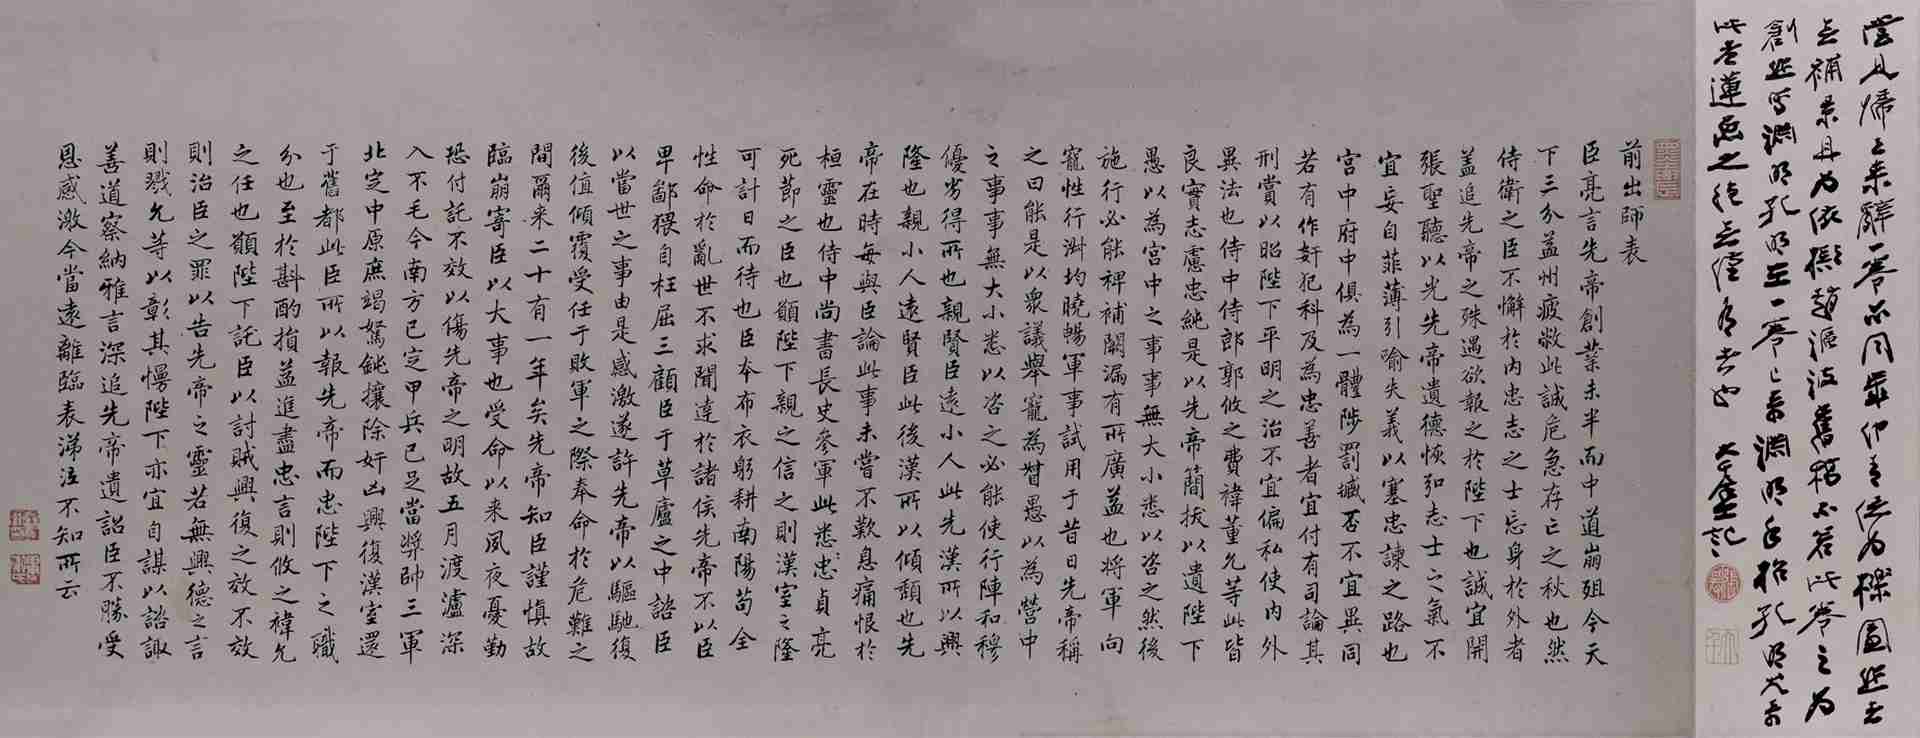 嘗見歸去來辭一卷亦同年仲
無補景且為依儗趙漚波舊格不若此卷之為
創然寫淵明孔明在一卷淵明手孔明
此老蓮之絕無者也 大千記
前出師表
臣亮言先帝創業未半而中道崩殂今天
下三分益州疲敝此誠危急存亡之秋也然
侍衛之臣不懈於內忠志之士忘身於外者
蓋追先帝之殊遇欲報之於陛下也誠宜開
張聖聽以光先帝遺德恢弘志士之氣不
宜妄自菲薄引喻失義以塞忠諫之路也
宮中府中俱為一體陟罰臧否不宜異同
若有作奸犯科及為忠善者宜付有司論其
刑賞以昭陛下平明之治不宜偏私使內外
異法也侍中侍郎郭攸之費禕董允等此皆
良實志慮忠純是以先帝簡拔以遺陛下
愚以為宮中之事事無大小悉以咨之然後
施行必能裨補闕漏有所廣益也將軍向
寵性行淑均曉暢軍事試用于昔日先帝稱
之曰能是以眾議舉寵為督愚以為營中
之事事無大小悉以咨之必能使行陣和穆
優劣得所也親賢臣遠小人此先漢所以興
隆也親小人遠賢臣此後漢所以傾頹也先
帝在時每與臣論此事未嘗不歎息痛恨於
桓靈也侍中尚書長史參軍此悉忠貞亮
死節之臣也願陛下親之信之則漢室之隆
可計日而待也臣本布衣躬耕南陽苟全
性命於亂世不求聞達於諸侯先帝不以臣
卑鄙猥自枉屈三顧臣于草廬之中諮臣
以當世之事由是感激遂許先帝以驅馳復
後值傾覆受任于敗軍之際奉命於危難之
間爾来二十有一年矣先帝知臣謹慎故
臨崩寄臣以大事也受命以来夙夜憂勤
恐付託不效以傷先帝之明故五月渡瀘深
入不毛今南方已定甲兵已足當獎帥三軍
北定中原庶竭駑鈍攘除奸凶興復漢室還
于舊都此臣所以報先帝而忠陛下之職
分也至於斟酌損益進盡忠言則攸之禕允
之任也願陛下託臣以討賊興復之效不效
則治臣之罪以告先帝之靈若無興德之言
則戮允等以彰其慢陛下亦宜自謀以諮諏
善道察納雅言深追先帝遺詔臣不勝受
恩感激今當遠離臨表涕泣不知所云